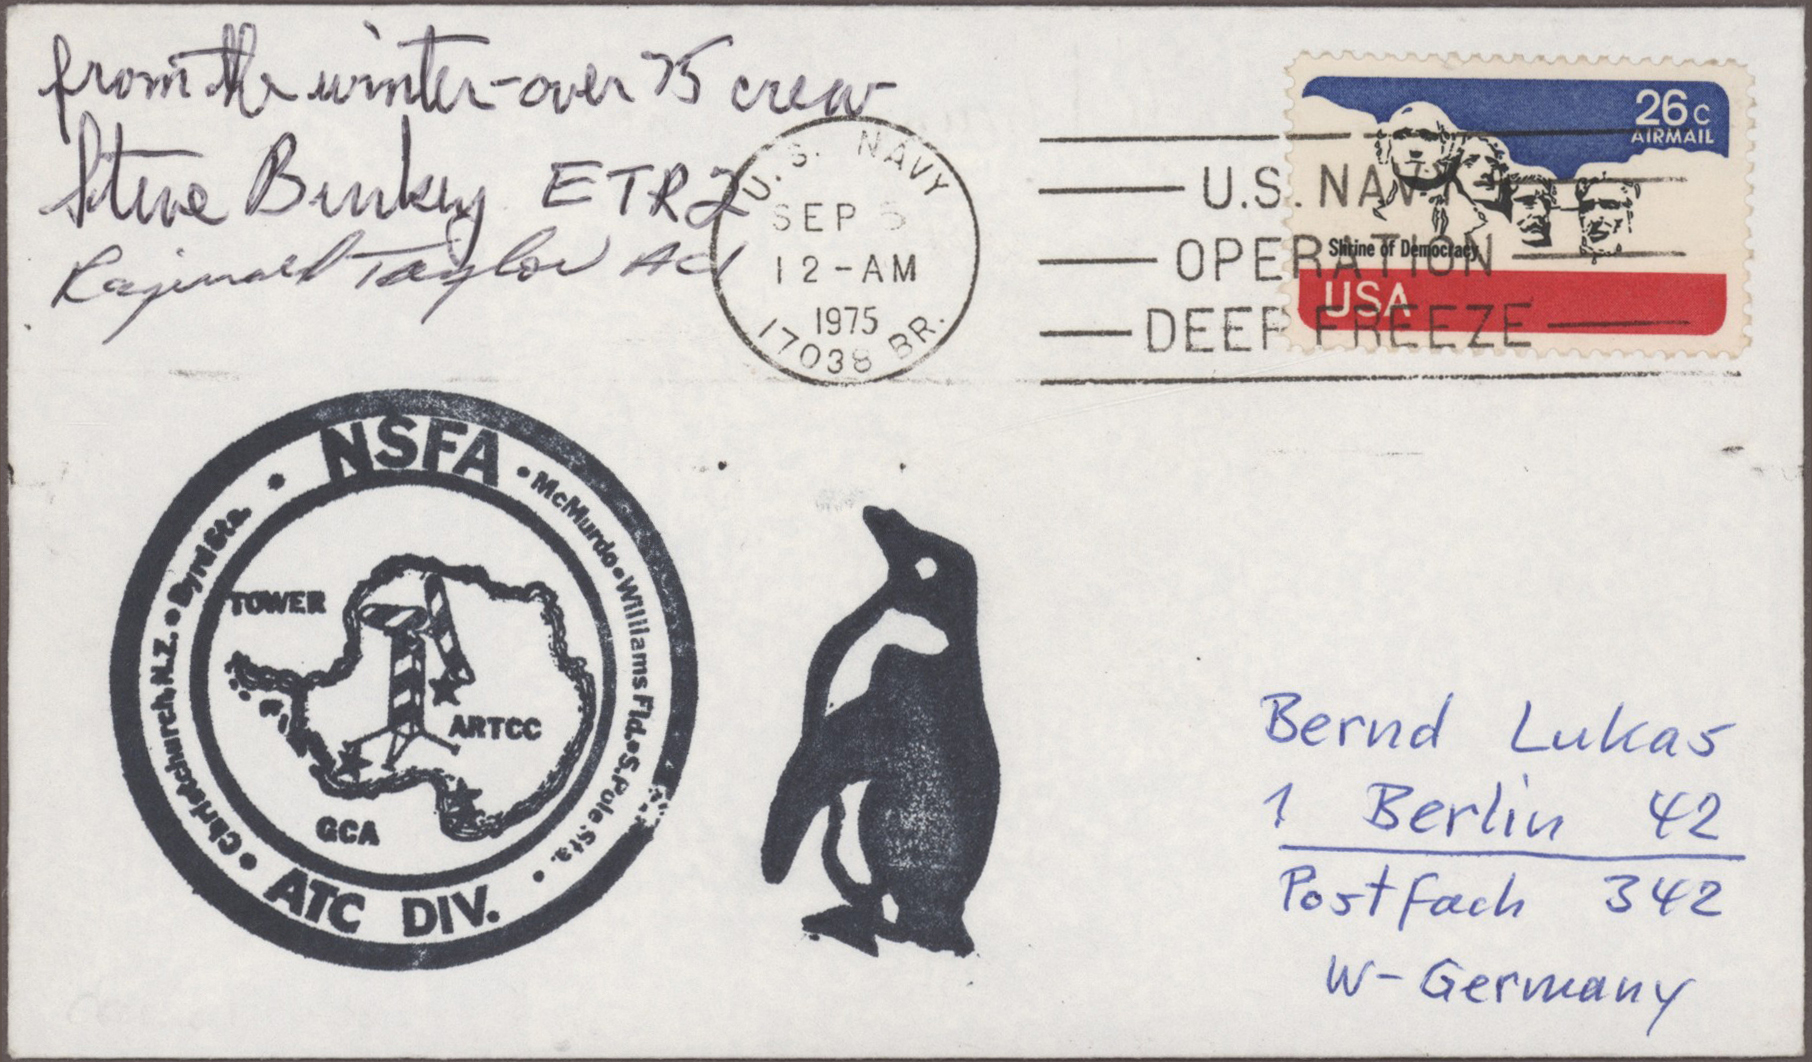 from the winter-over 75 crew
Steve Binkey ETR2
Reginald Taylor AC1
U.S. NAVY
SEP
12-AM
1975
17038 BR.
U.S. NAVY
OPERATION
DEEP FREEZE
26c
AIRMAIL
Shrine of Democracy
USA
NSFA
• McMurdo • Williams Fld. • S. Pole Sta. •
ATC DIV.
• Christchurch, N.Z. • Byrd Sta. •
TOWER
ARTCC
GCA
Bernd Lukas
1 Berlin 42
Postfach 342
W-Germany